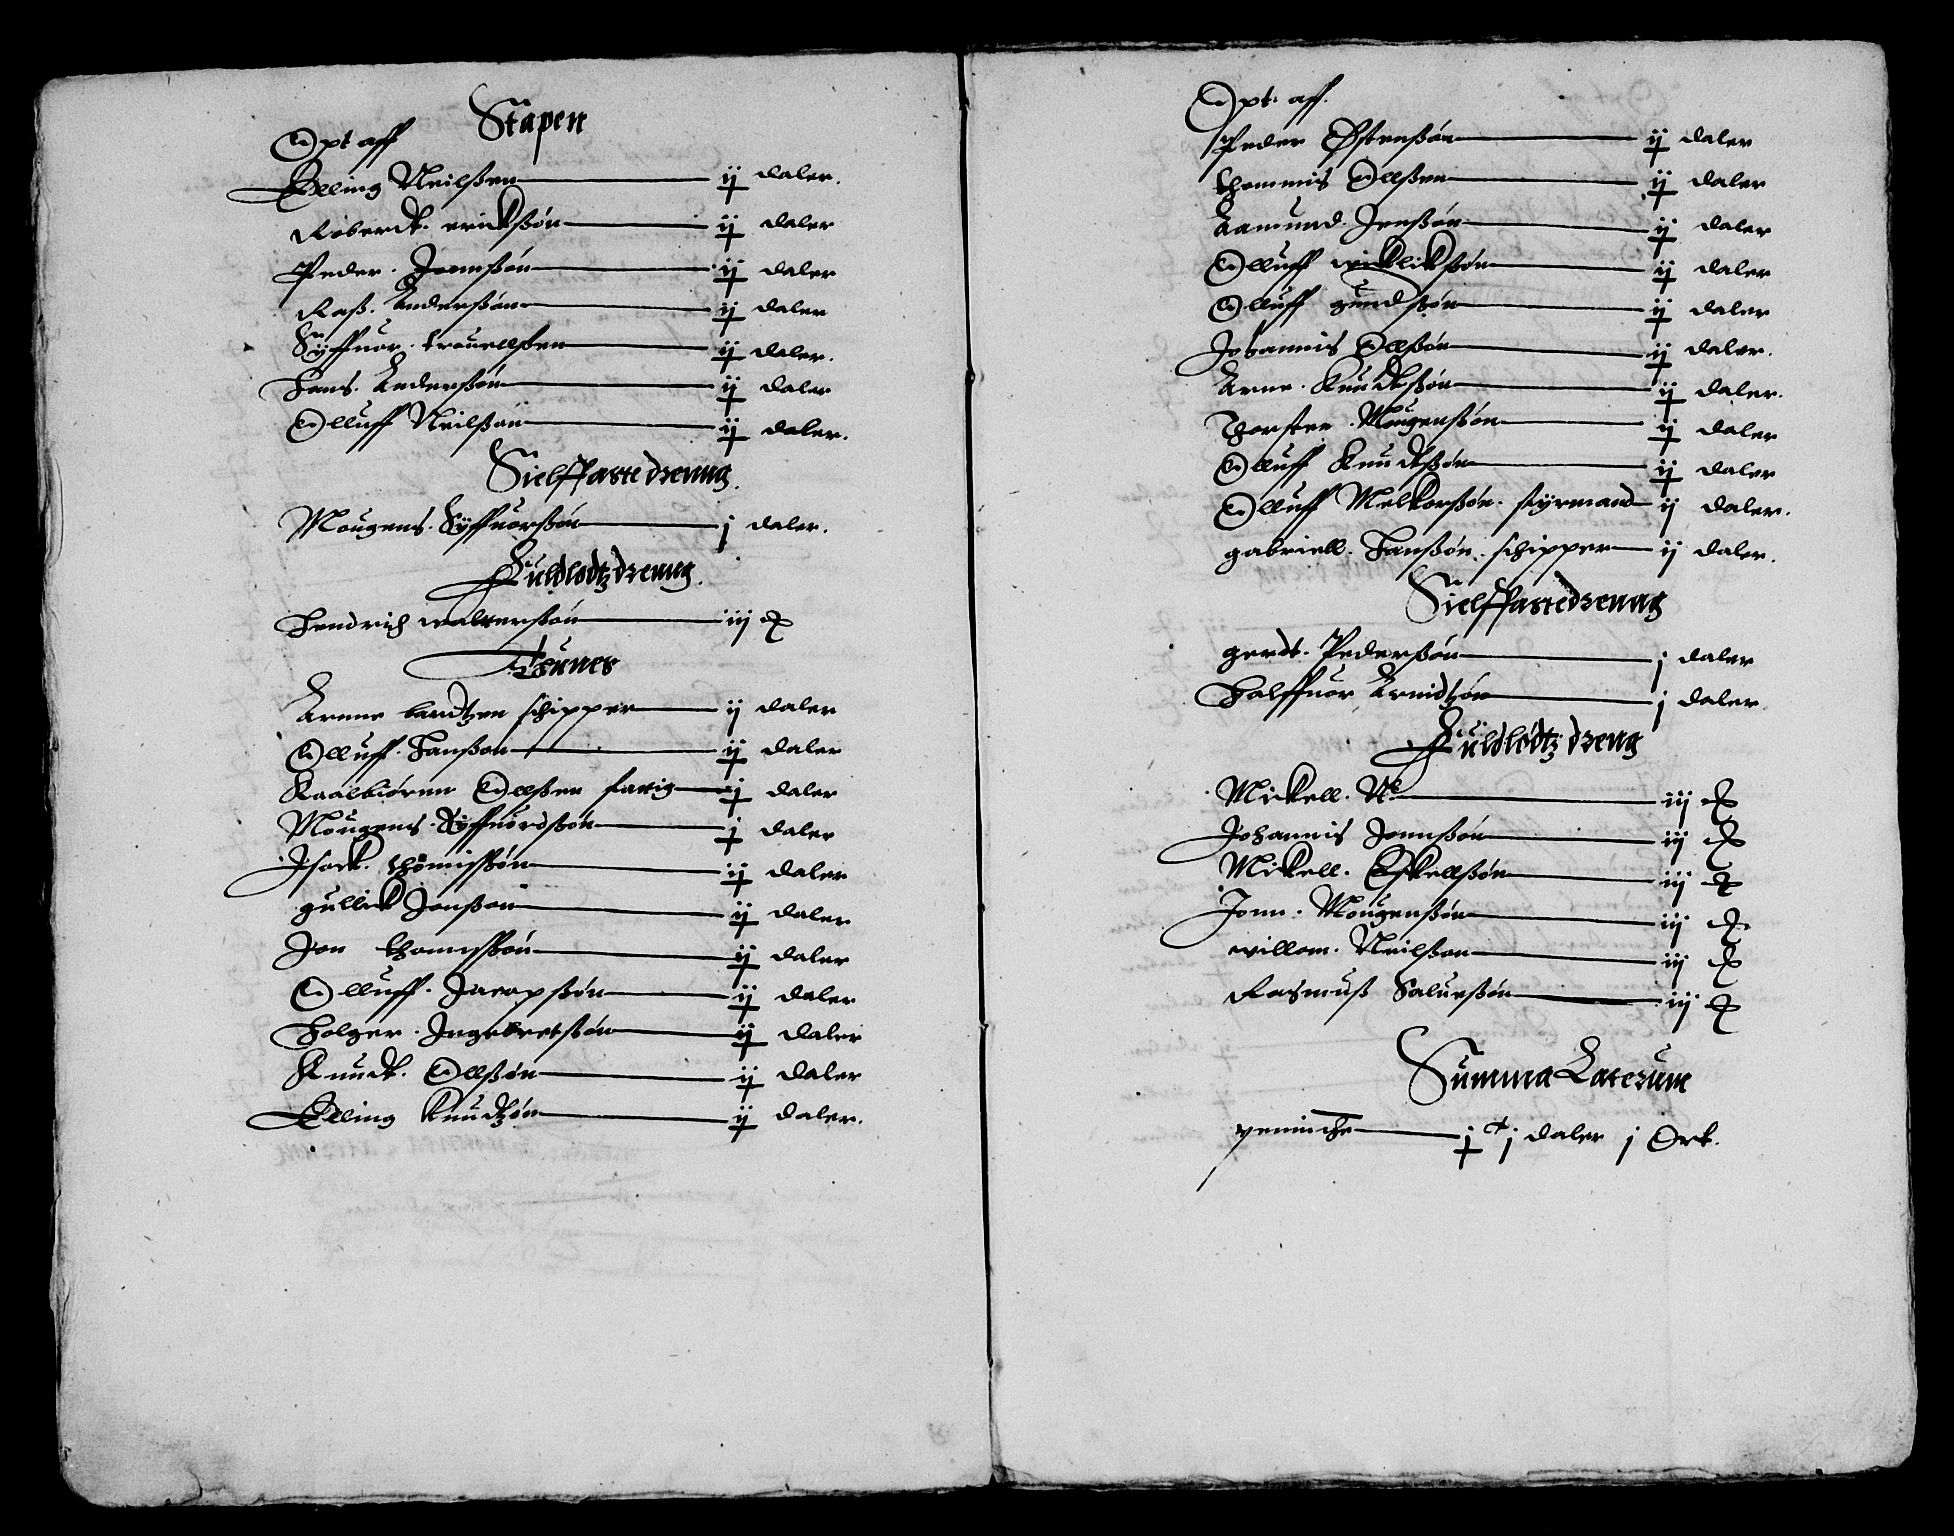 Stapen
Opt aff
Elling Neilßen ij daler.
Roberdt. erickßøn ij daler
Peder. Jonnßøn ij daler
Raß. Anderßøn ij daler
Syffuor. trouellßen ij daler.
Hans. Anderßøn ij daler
Olluff Neilßøn ij daler.
Sielffarre drenng.
Mougens. Syffuorßøn j daler.
Fuldlodtz drenng.
Hendrich walterßøn iij
Thunes
Arnne bardtzen schipper ij daler
Olluff. Hanßøn ij daler
Kaalbiørnn Ollßen fattig j daler
Mougens. Syffuordßøn j daler
Isack. thomisßøn ij daler
gullick Jonßøn ij daler
Jon thomisßøn ij daler
Olluff. Jacopßøn ij daler
Holger. Ingebretßøn ij daler
Knudt. Ollßøn ij daler
Elling Knudtzøn ij daler.
Opt. aff.
Peder Østenßøn ij daler
thommis Ollßen ij daler
Aamund. Jenßøn ij daler
Olluff ßøn ij daler
Olluff gundßøn ij daler
Johannis Ollßøn ij daler.
Arne. Knudtßøn ij daler.
Thorsten. Mougenßøn ij daler
Olluff Knudtßøn ij daler
Olluff Melkorßøn. styrmand ij daler.
gabriell. Hanßøn. schipper ij daler.
Sielffarre drenng
gerdt. Pederßøn j daler
Halffuor Arnidtzøn j daler
Fuldlodtz dreng
Mickell. N iij
Johannis Jonnßøn iij
Mickell. Eskellßøn iij
Jonn. Mougenßøn iij
willom. Neilßøn iij
Rasmuß Saluerßøn iij
Summa Laterum
penninche j j daler j Ort.